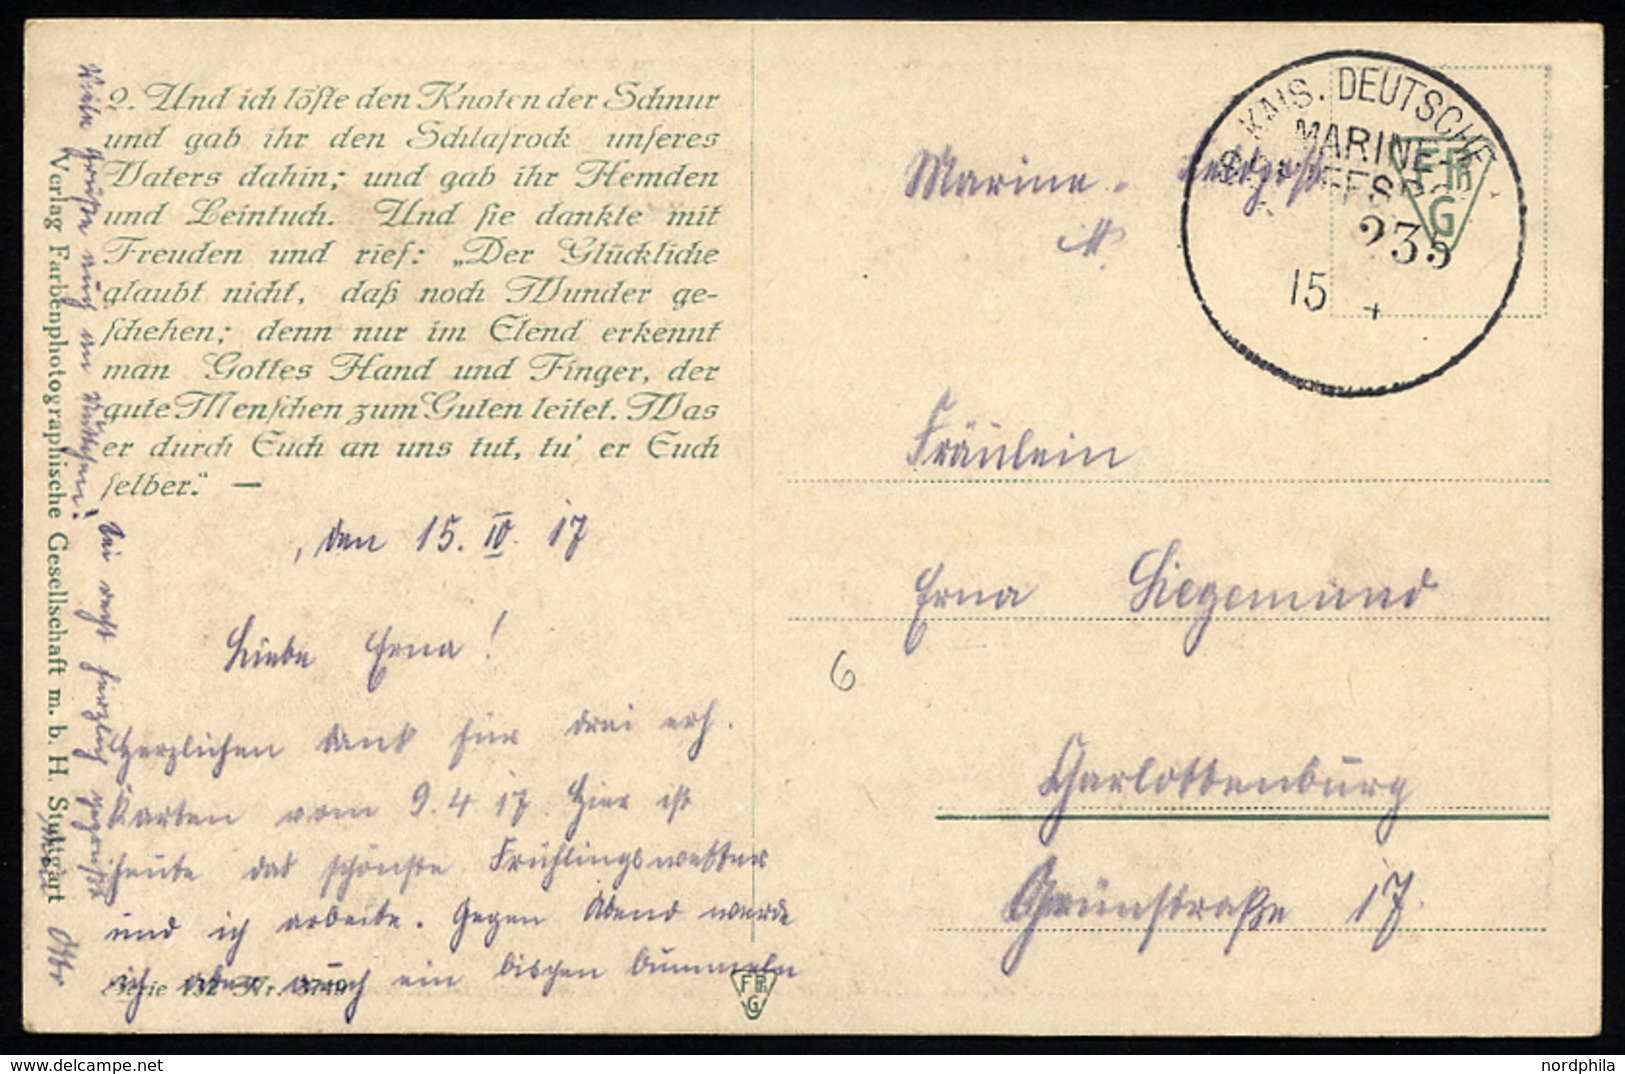 2. Und ich löste den Knoten der Schnur
und gab ihr den Schlafrock unseres
Vaters dahin; und gab ihr Hemden
und Leintuch. Und sie dankte mit
Freuden und rief: „Der Glückliche
glaubt nicht, daß noch Wunder ge-
schehen; denn nur im Elend erkennt
man Gottes Hand und Finger, der
gute Menschen zum Guten leitet. Was
er durch Euch an uns tut, tu' er Euch
selber.“ —
, den 15. IV. 17
Liebe Erna!
Herzlichen Dank für drei erh.
Karten vom 9.4.17. Hier ist
heute das schönste Frühlingswetter
und ich arbeite. Gegen Abend werde
ich aber auch ein bischen bummeln
Serie 132 Nr. 3749
Viele Grüße auch an Muttchen!
Sei recht herzlich gegrüßt
Otto
Verlag Farbenphotographische Gesellschaft m. b. H. Stuttgart
FPh
G
Marine-Feldpost
M.
KAIS. DEUTSCHE
MARINE-
235
15 4
FPh
G
Fräulein
Erna Siegemund
Charlottenburg
Grünstraße 17.
6
nordphila